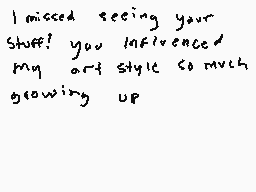 I missed seeing your
stuff! you influenced
my art style so much
growing up